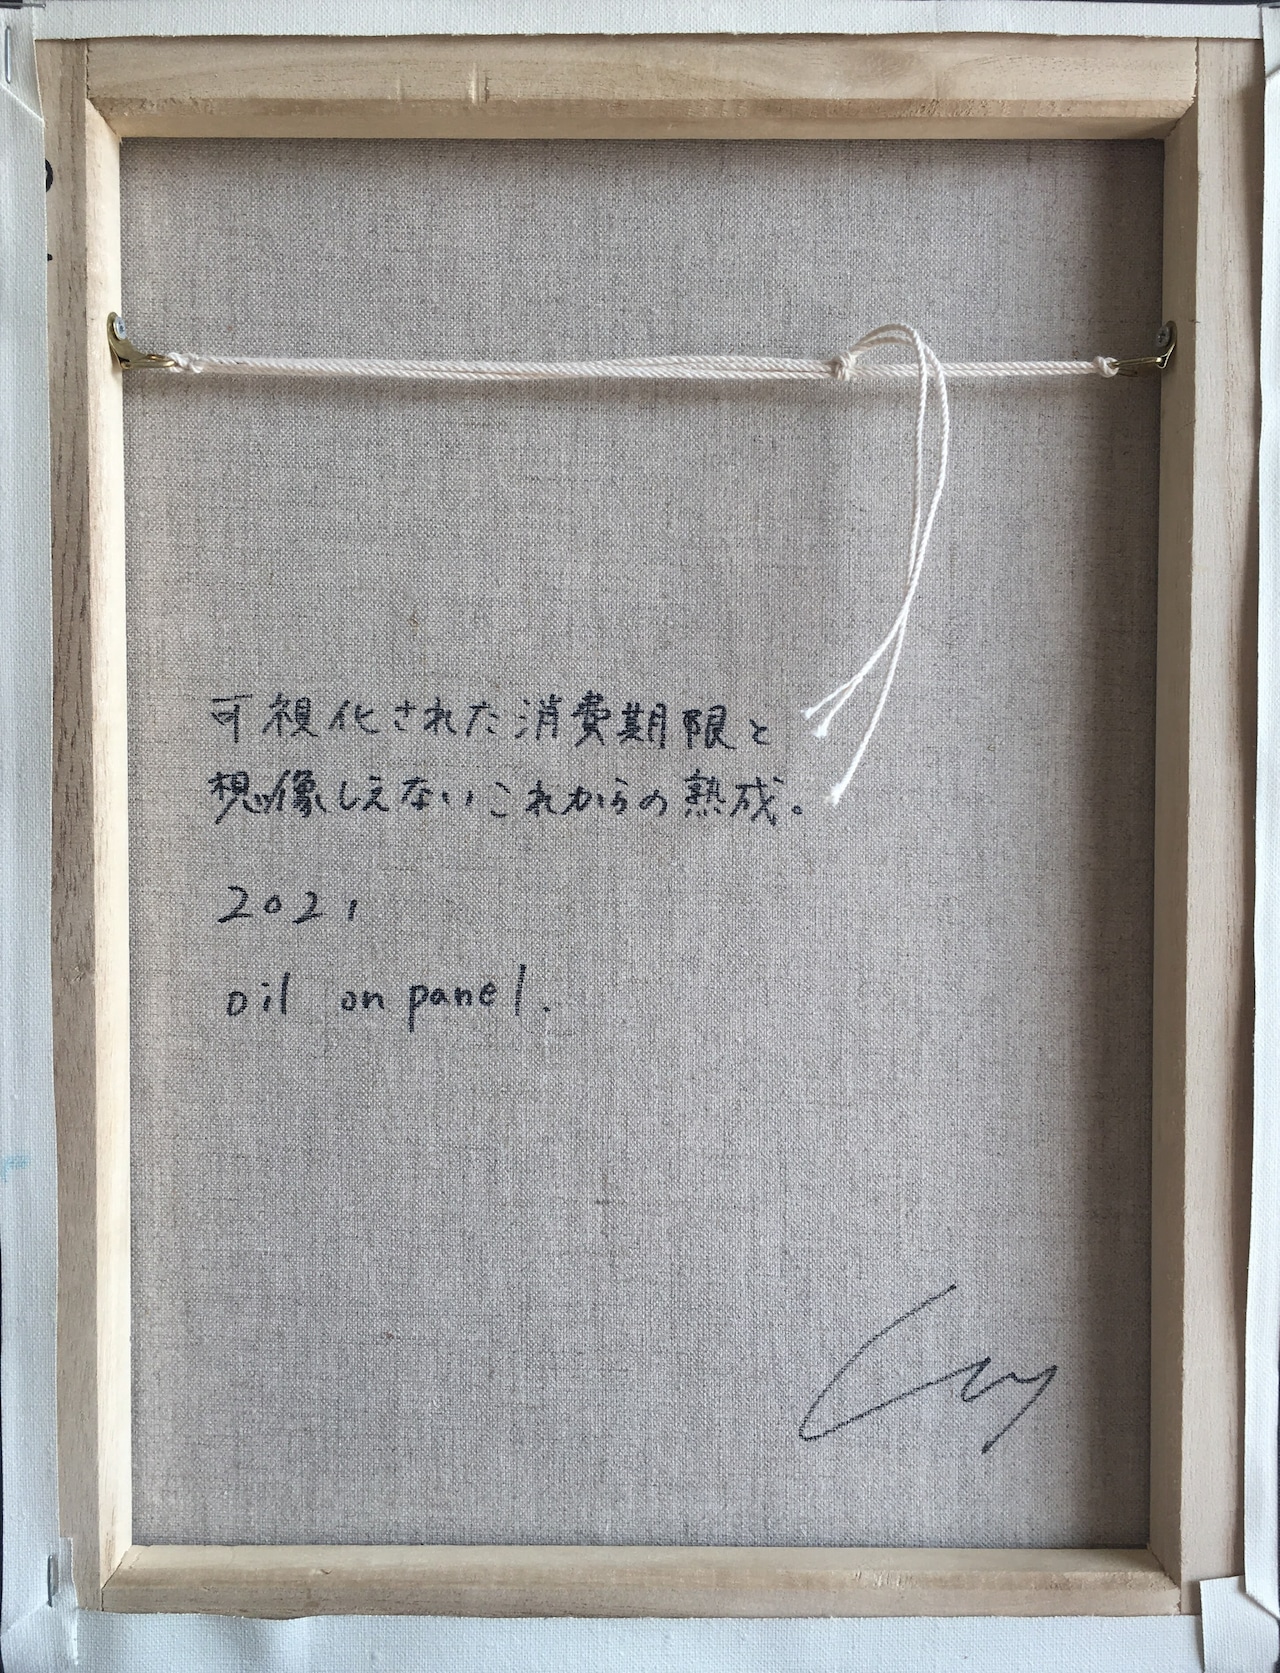 可視化された消費期限と
想像しえないこれからの熟成。
2021
oil on panel.